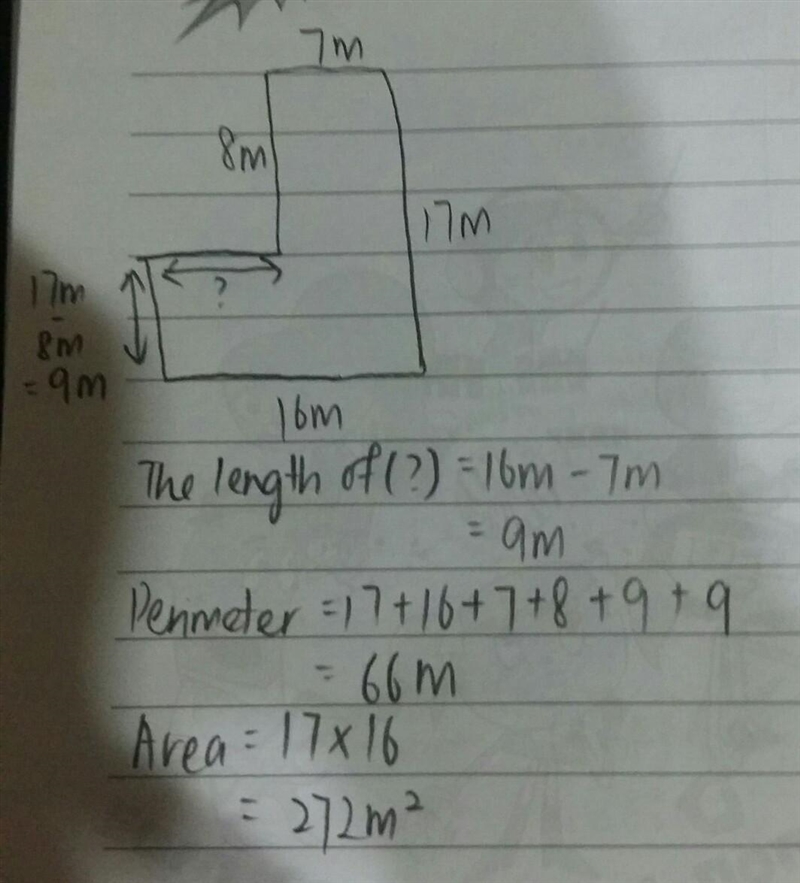 7m
8m
17m
?
17m
-
8m
= 9m
16m
The length of (?) = 16m - 7m
= 9m
Perimeter = 17 + 16 + 7 + 8 + 9 + 9
= 66m
Area = 17 x 16
= 272m²